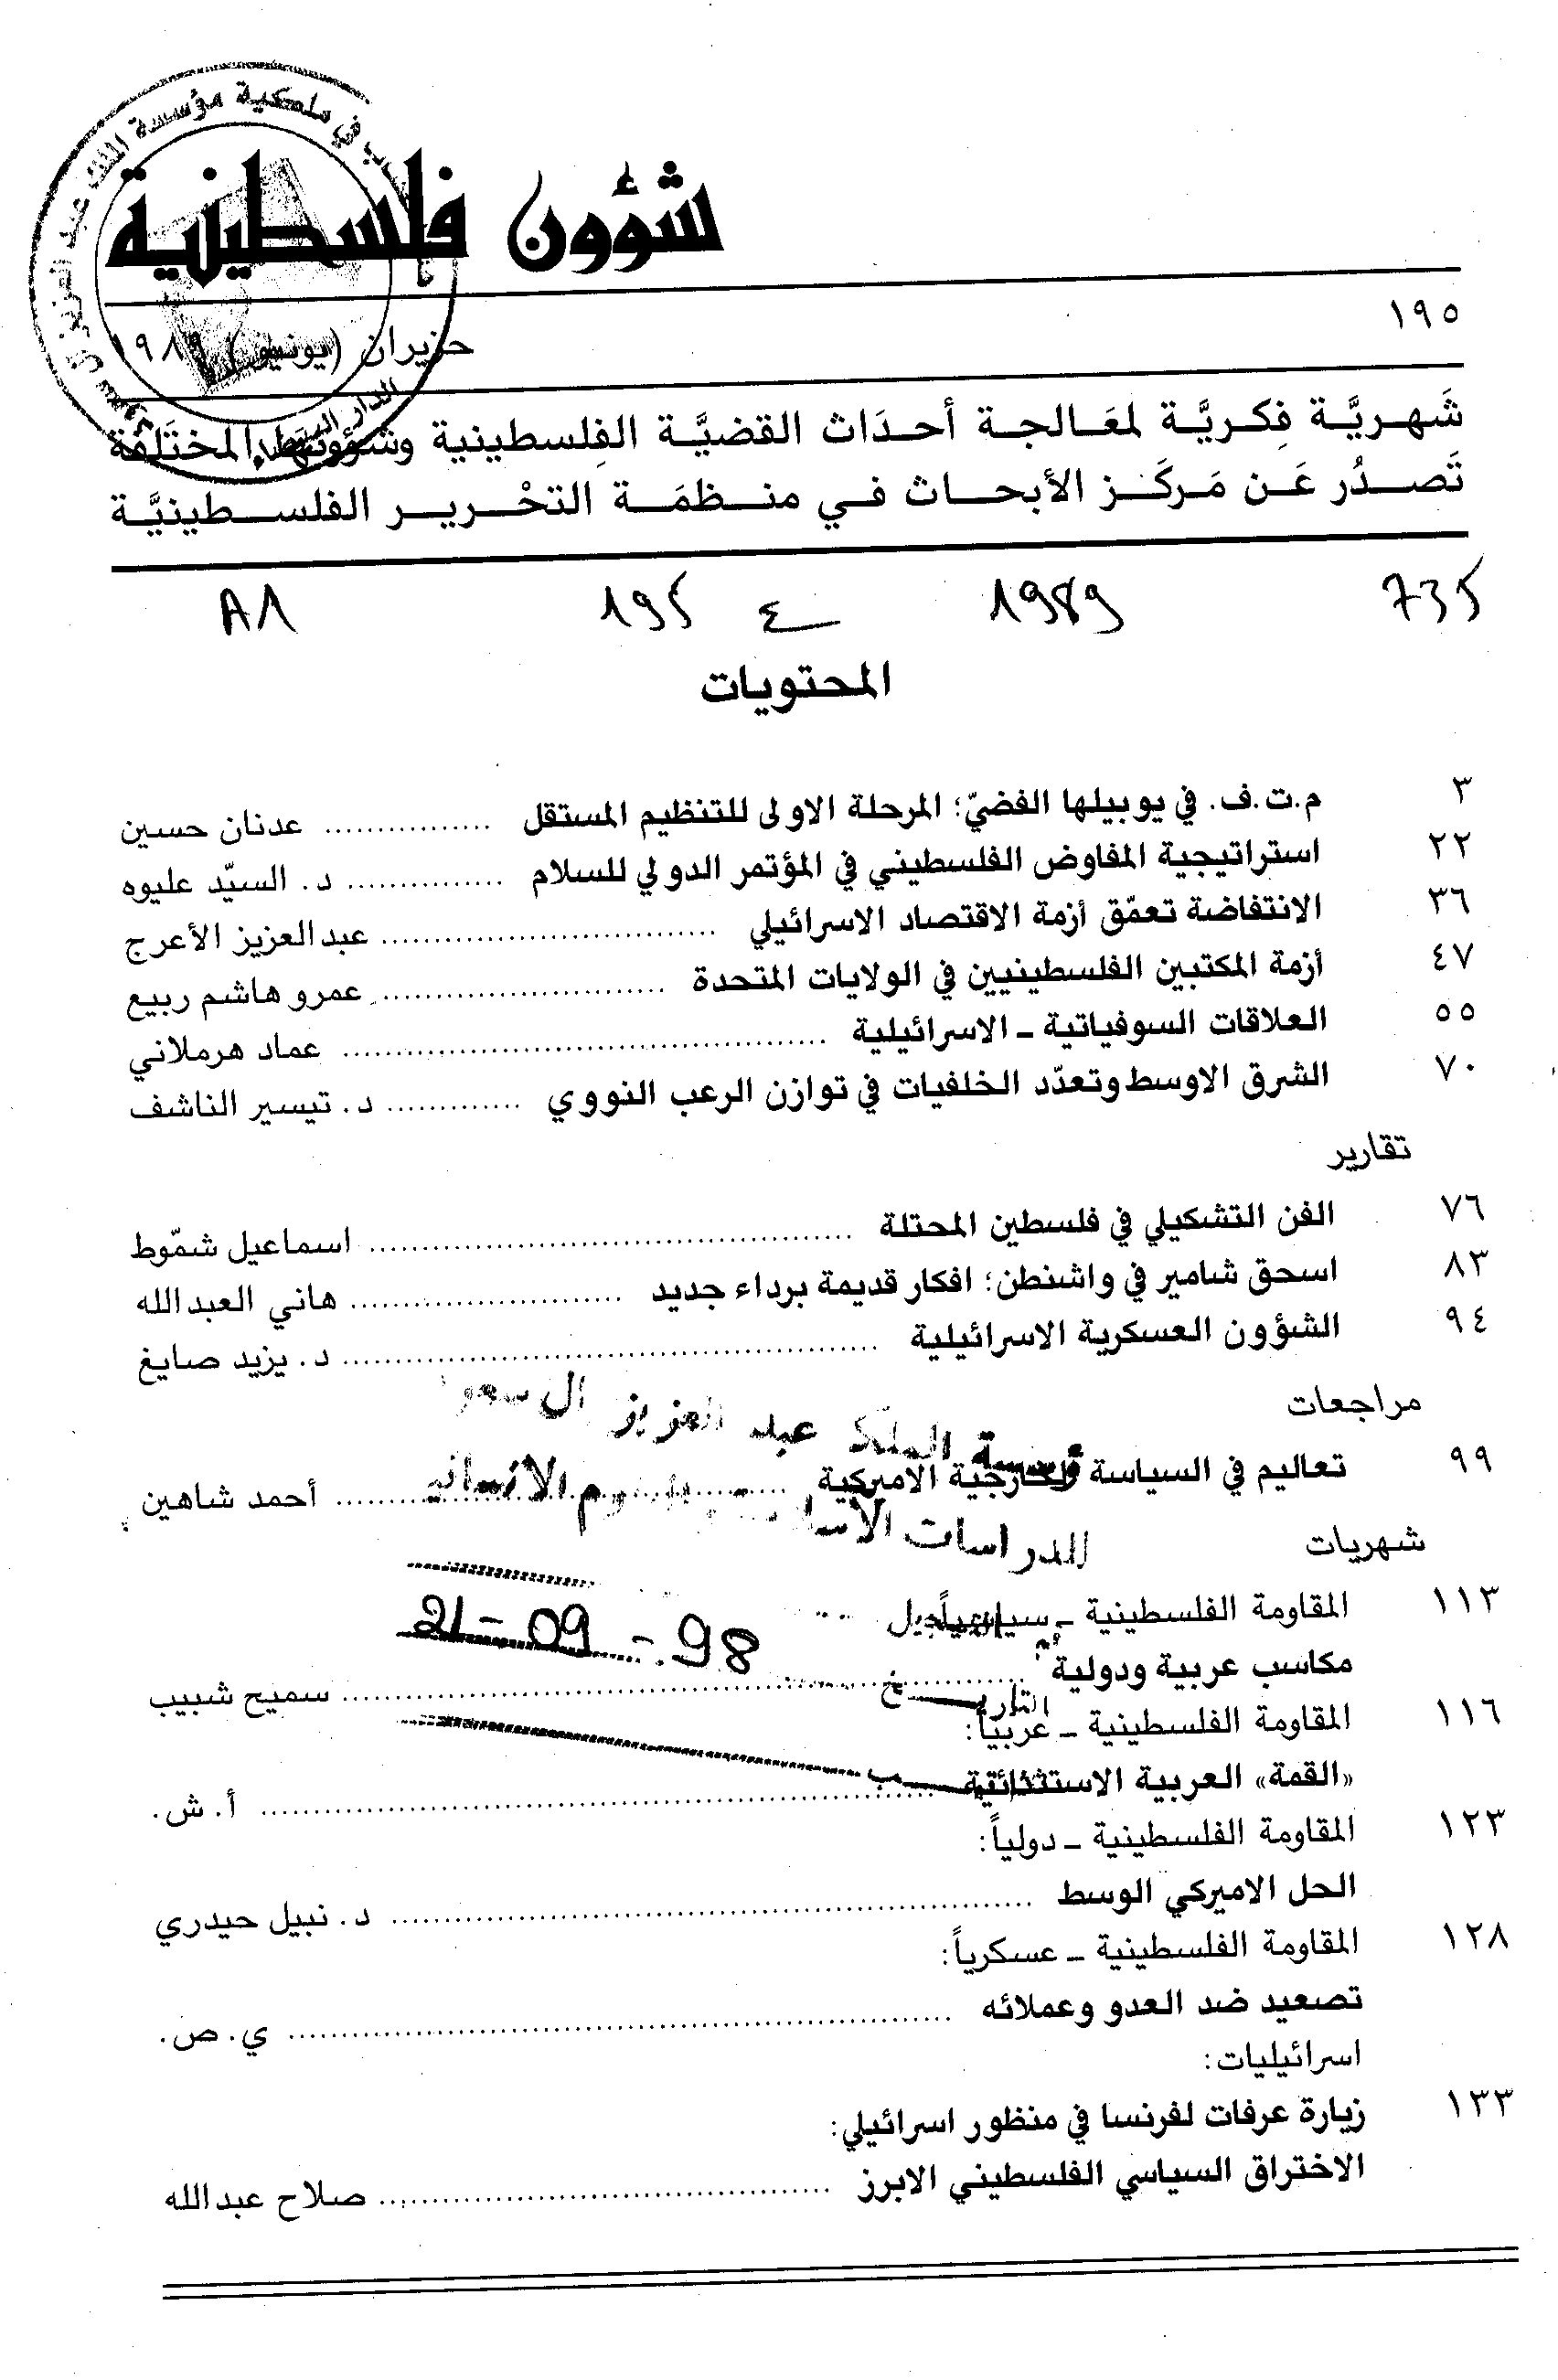 في ملكية مؤسسة الملك عبد العزيز
شؤون فلسطينية
١٩٥
حزيران (يونيو) ١٩٨٩
شَهريَّة فِكريَّة لمعَالجة أحدَاث القضيَّة الفِلسطينية وشؤونهَا المختَلفة
تَصدُر عَن مَركَز الأبحاث في منظمَة التحْرير الفلسطينيَّة
735
1989
ع
195
A1
المحتويات
٣ م.ت.ف. في يوبيلها الفضيّ؛ المرحلة الاولى للتنظيم المستقل ................ عدنان حسين
٢٢ استراتيجية المفاوض الفلسطيني في المؤتمر الدولي للسلام ............... د. السيّد عليوه
٣٦ الانتفاضة تعمّق أزمة الاقتصاد الاسرائيلي ................................ عبدالعزيز الأعرج
٤٧ أزمة المكتبين الفلسطينيين في الولايات المتحدة ........................... عمرو هاشم ربيع
٥٥ العلاقات السوفياتية ـ الاسرائيلية .............................................. عماد هرملاني
٧٠ الشرق الاوسط وتعدّد الخلفيات في توازن الرعب النووي ............. د. تيسير الناشف
تقارير
٧٦ الفن التشكيلي في فلسطين المحتلة .............................................. اسماعيل شمّوط
٨٣ اسحق شامير في واشنطن؛ افكار قديمة برداء جديد .......................... هاني العبدالله
٩٤ الشؤون العسكرية الاسرائيلية ................................................... د. يزيد صايغ
مراجعات
مؤسسة الملك عبد العزيز آل سعود
٩٩ تعاليم في السياسة الخارجية الاميركية ............................................. أحمد شاهين
للدراسات الاسلامية والعلوم الانسانية
شهريات
١١٣ المقاومة الفلسطينية ـ سياسياً:
21-09-98
مكاسب عربية ودولية ................................................................ سميح شبيب
التاريخ
١١٦ المقاومة الفلسطينية ـ عربياً:
«القمة» العربية الاستثنائية ............................................................ أ. ش.
١٢٣ المقاومة الفلسطينية ـ دولياً:
الحل الاميركي الوسط .............................................................. د. نبيل حيدري
١٢٨ المقاومة الفلسطينية ـ عسكرياً:
تصعيد ضد العدو وعملائه .............................................................. ي. ص.
اسرائيليات:
١٣٣ زيارة عرفات لفرنسا في منظور اسرائيلي:
الاختراق السياسي الفلسطيني الابرز ............................................ صلاح عبدالله